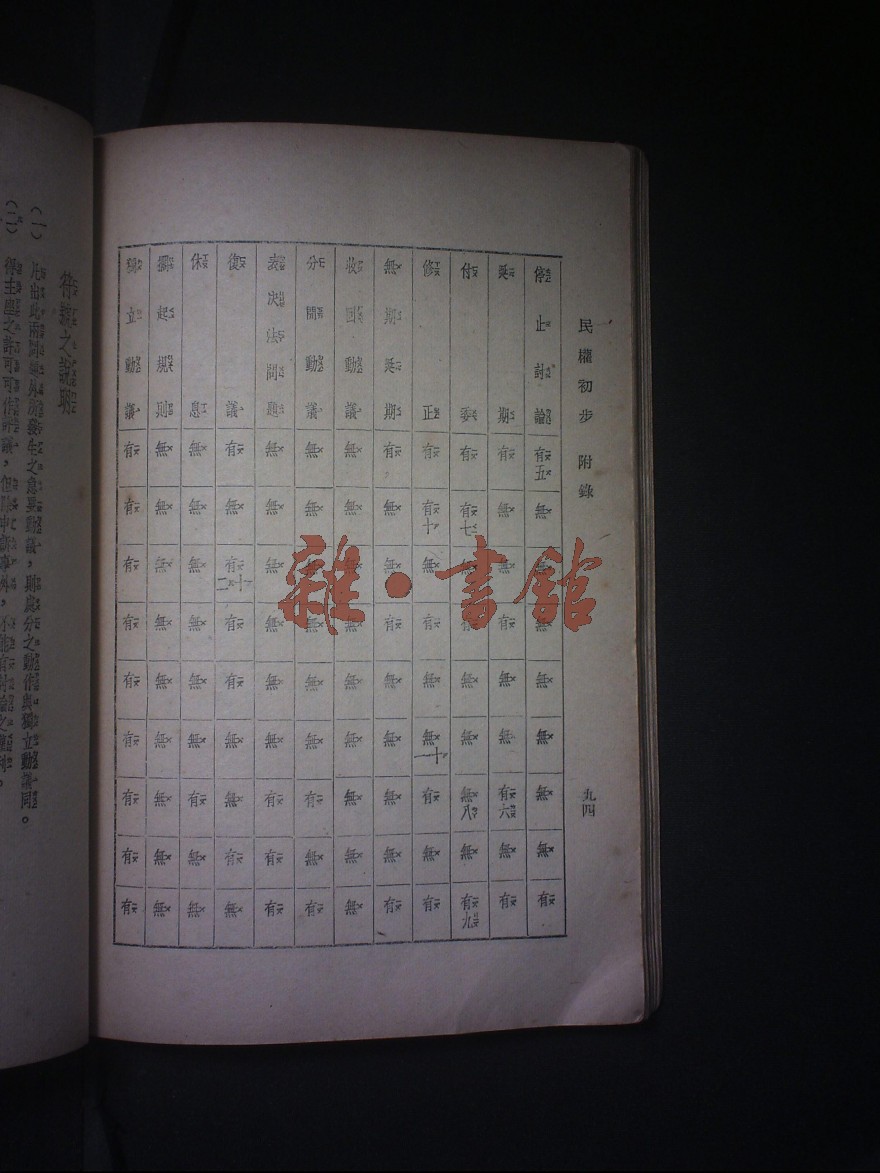 民權初步 附錄
九四
停止討論 有五 無 無 無 無 無 無 有
延期 有 無 無 有 無 無 有六 無 有
付委 有 有七 無 有 無 無 無八 無 有九
修正 有 有十 無 有 無 無十一 有 無 有
無期延期 有 無 無 有 無 無 無 無 有
收回動議 無 無 無 無 無 無 無 無 無
分開動議 無 無 無 無 無 無 有 無 有
表決法問題 無 無 無 無 無 無 有 有 有
復議 有 無 有十二 有 有 無 無 有 無
休息 無 無 無 無 無 無 有 無 無
擱起規則 無 無 無 無 無 無 無 無 無
獨立動議 有 有 有 有 有 有 有 有 有
符號之說明
(一) 凡出此兩問題外所發生之意異動議,則處分之動作與獨立動議同。
(二) 得主座之許可可作評議,但除申訴事外,不能有討論之權利。
雜·書館